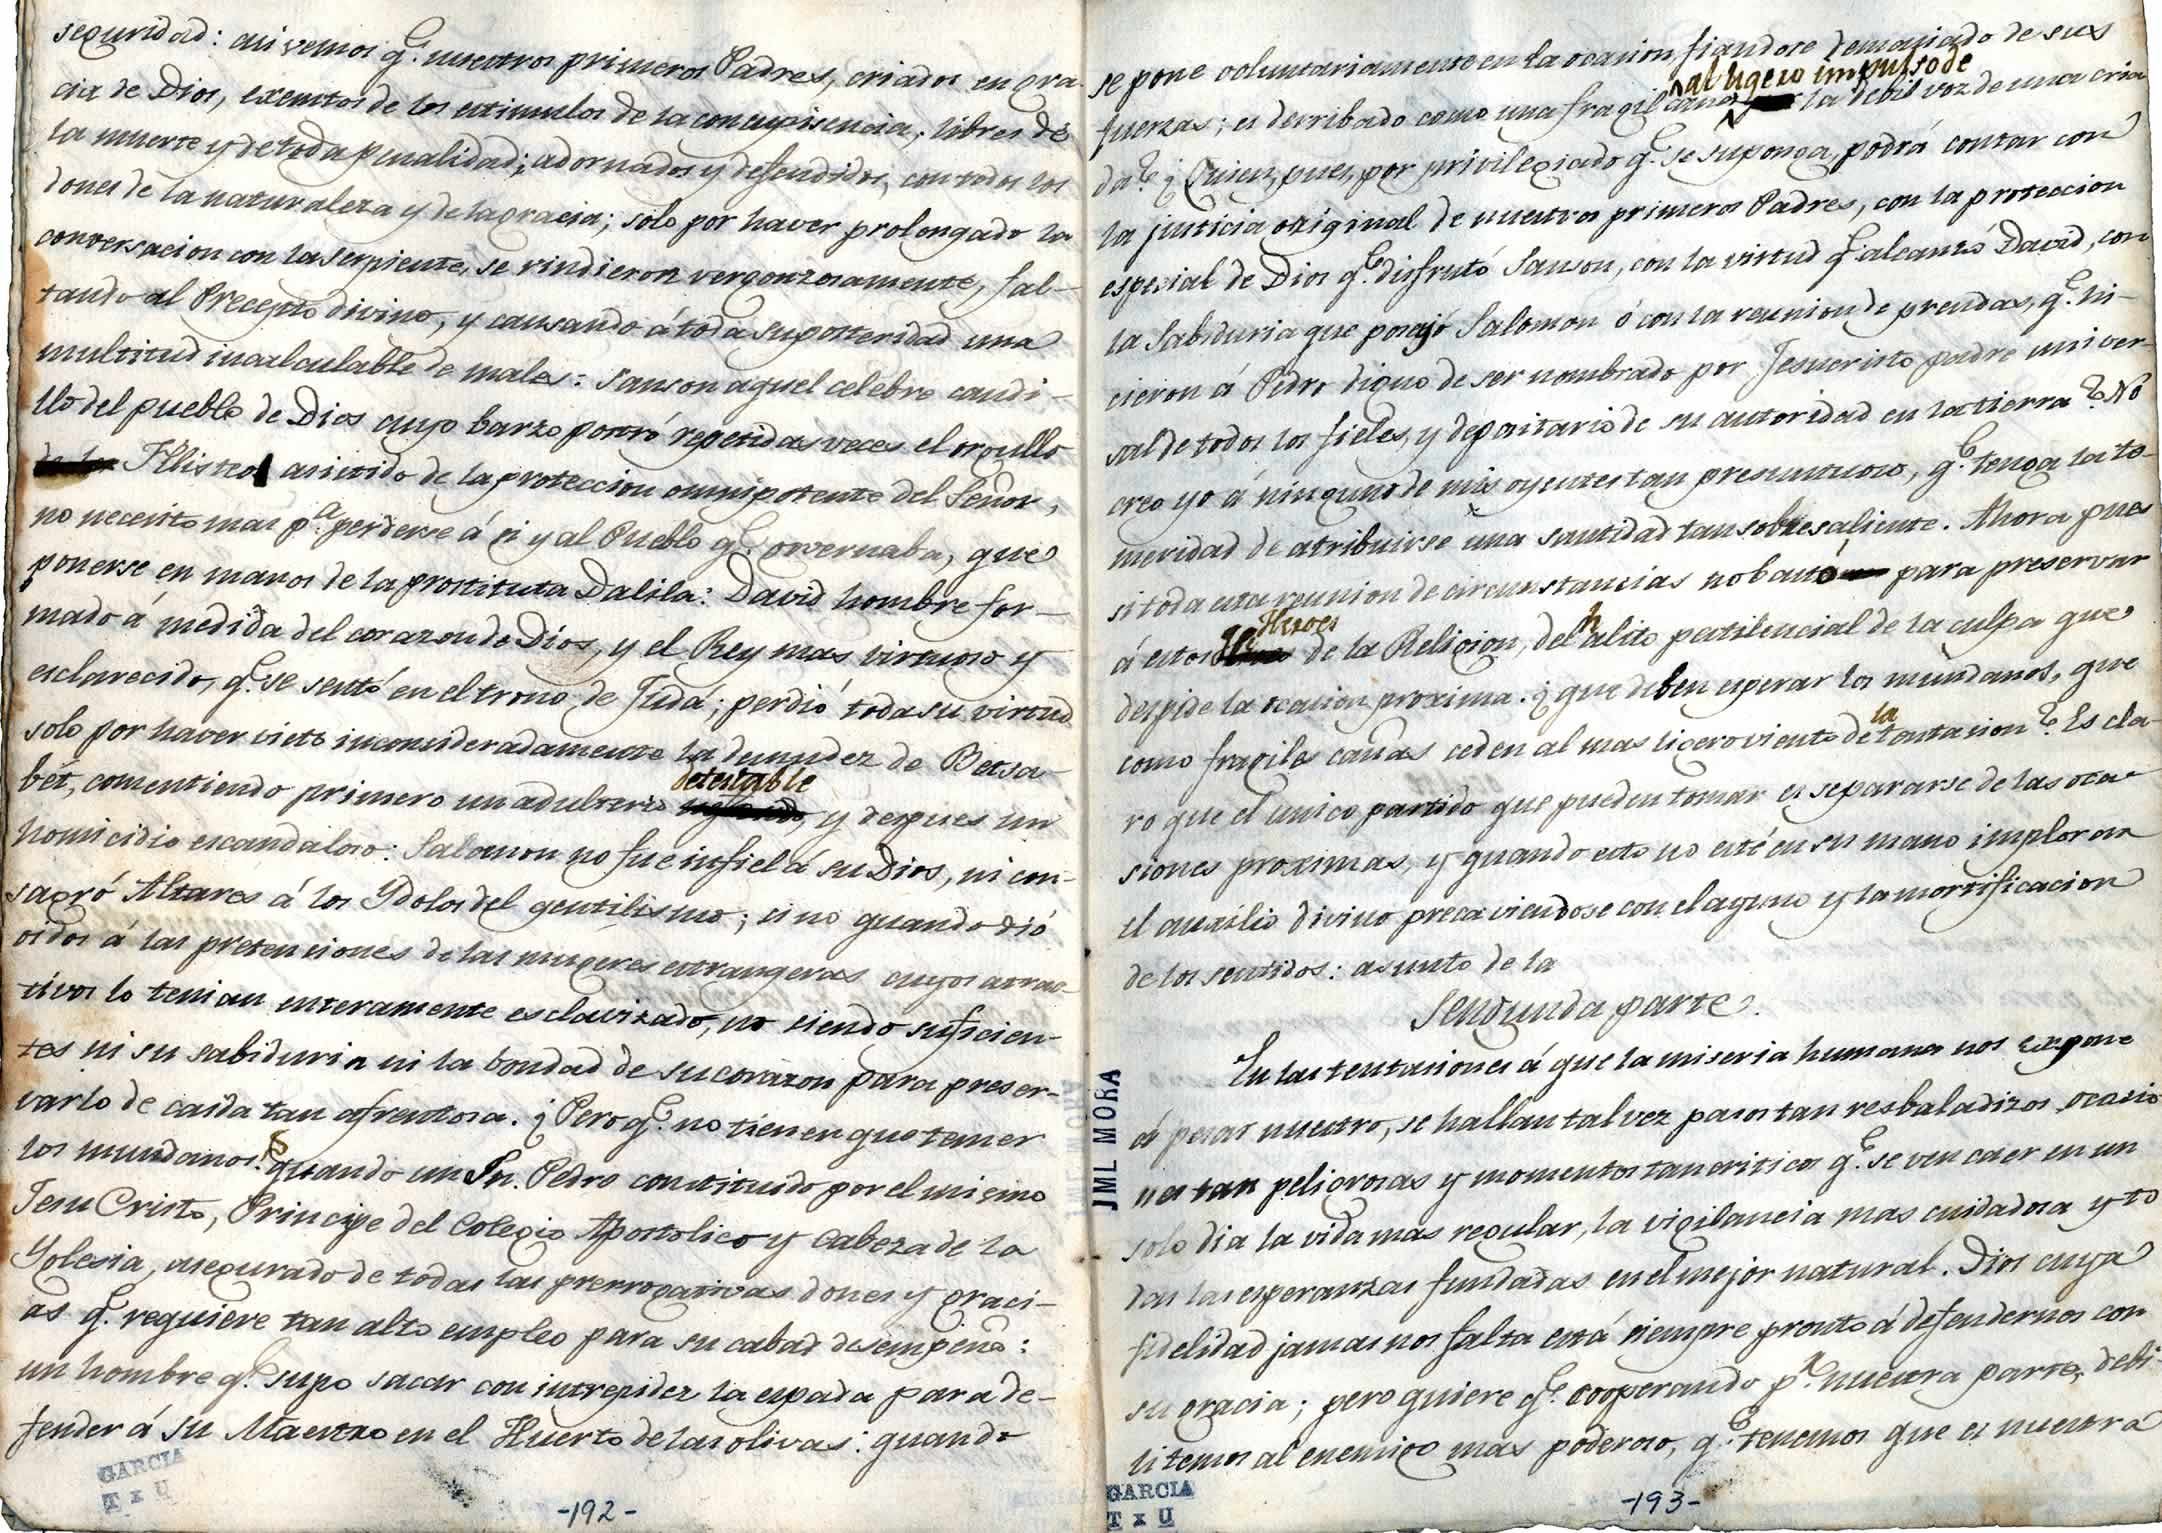 seguridad: asi vemos q.e nuestros primeros Padres, criados en gra-
cia de Dios, exemtos de los estimulos de la concupisencia, libres de
la muerte y de toda penalidad; adornados y defendidos, con todos los
dones de la naturaleza y de la gracia; solo por haver prolongado la
conversacion con la serpiente, se rindieron vergonzosamente, fal-
tando al Precepto divino, y causando á toda su posteridad una
multitud incalculable de males: Sanson aquel celebre caudi-
llo del pueblo de Dios cuyo barzo postró repetidas veces el orgullo
Filisteo asistido de la proteccion omnipotente del Señor,
no necesito mas p.a perderse á si y al Pueblo q.e governaba, que
ponerse en manos de la prostituta Dalila: David hombre for-
mado á medida del corazon de Dios, y el Rey mas virtuoso y
esclarecido, q.e se sentó en el trono de Juda; perdió toda su virtud
solo por haver visto inconsideradamente la desnudez de Betsa-
bét, comentiendo primero un adulterio
detestable
, y despues un
homicidio escandaloso: Salomon no fue infiel á su Dios, ni con-
sagró Altares á los Ydolos del gentilismo; si no quando dió
oidos á las pretenciones de las mugeres estrangeras cuyos atrac-
tivos lo tenian enteramente esclavizado, no siendo suficien-
tes ni su sabiduria ni la bondad de su corazon para preser-
varlo de caida tan afrentosa. ¿Pero q.e no tienen que temer
los mundanos? quando un Sn. Pedro constituido por el mismo
Jesu Cristo, Principe del Colegio Apostolico y Cabeza de la
Yglesia, asegurado de todas las prerrogativas dones y graci-
as q.e requiere tan alto empleo para su cabal desempeño:
un hombre q.e supo sacar con intrepidez la espada para de-
fender á su Maestro en el Huerto de las olivas: quando
GARCIA
T x U
-192-
se pone voluntariamente en la ocasion fiandose demasiado de sus
al ligero impulso de
fuerzas; es derribado como una fragil caña la debil voz de una cria
da? ¿Quien, pues, por privilegiado q.e se suponga, podrá contar con
la justicia original de nuestros primeros Padres, con la proteccion
especial de Dios q.e disfrutó Sanson, con la virtud q.e alcanzó David, con
la Sabiduria que poseyó Salomon ó con la reunion de prendas, q.e hi-
cieron á Pedro digno de ser nombrado por Jesucristo padre univer-
sal de todos los fieles, y depositario de su autoridad en la tierra? No
creo yo á ninguno de mis oyentes tan presuntuoso, q.e tenga la te-
meridad de atribuirse una santidad tan sobresaliente. Ahora pues
si toda esta reunion de circunstancias no bastó para preservar
á estos
Heroes
de la Religion, del halito pestilencial de la culpa que
despide la ocasion proxima. ¿que deben esperar los mundanos, que
como fragiles cañas ceden al mas ligero viento de la tentasion? Es cla-
ro que el unico partido que pueden tomar es separarse de las oca-
siones proximas, y quando esto no esté en su mano implorar
el auxilio divino precaviendose con el ayuno y la mortificacion
de los sentidos: asunto de la
Sengunda parte.
En las tentasiones á que la miseria humana nos expone
á pesar nuestro, se hallan tal vez pasos tan resbaladizos ocasio
nes tan peligrosas y momentos tan criticos q.e se ven caer en un
solo dia la vida mas regular, la vigilancia mas cuidadosa y to
das las esperanzas fundadas en el mejor natural. Dios cuya
fidelidad jamas nos falta está siempre pronto á defendernos con
su gracia; pero quiere q.e cooperando p.r nuestra parte, debi-
litemos al enemigo mas poderoso, q.e tenemos que es nuestra
JML MORA
GARCIA
T x U
-193-